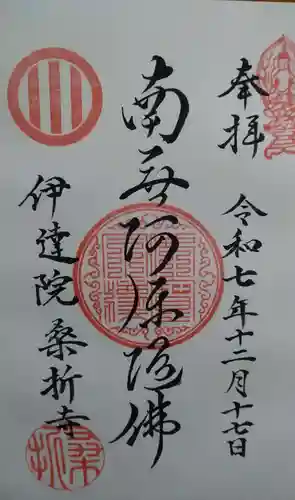 奉拝
令和七年十二月十七日
南無阿弥陀佛
伊達院 桑折寺
桑折